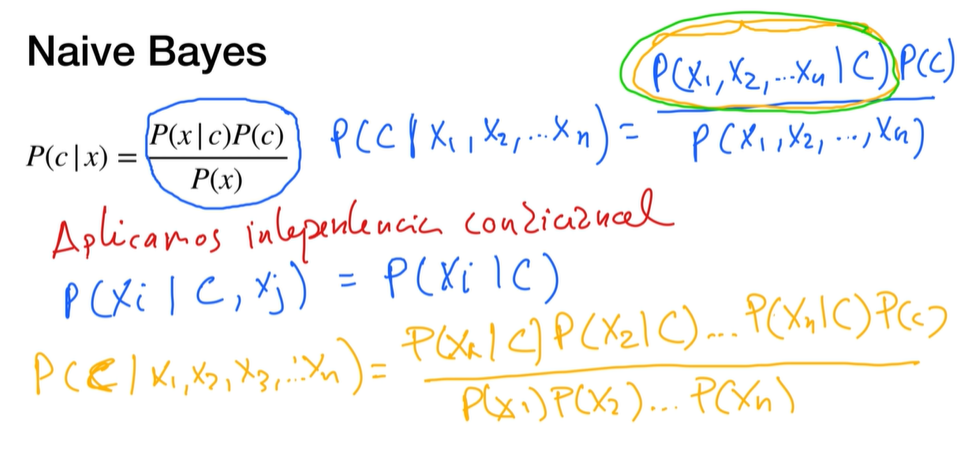 Naive Bayes
P(c|x) = P(x|c)P(c) / P(x)
P(C|X₁,X₂,...Xₙ) = P(X₁,X₂,...Xₙ|C)P(C) / P(X₁,X₂,...,Xₙ)
Aplicamos independencia condicional
P(Xi|C,Xj) = P(Xi|C)
P(C|X₁,X₂,X₃,...Xₙ) = P(X₁|C)P(X₂|C)...P(Xₙ|C)P(C) / P(X₁)P(X₂)...P(Xₙ)